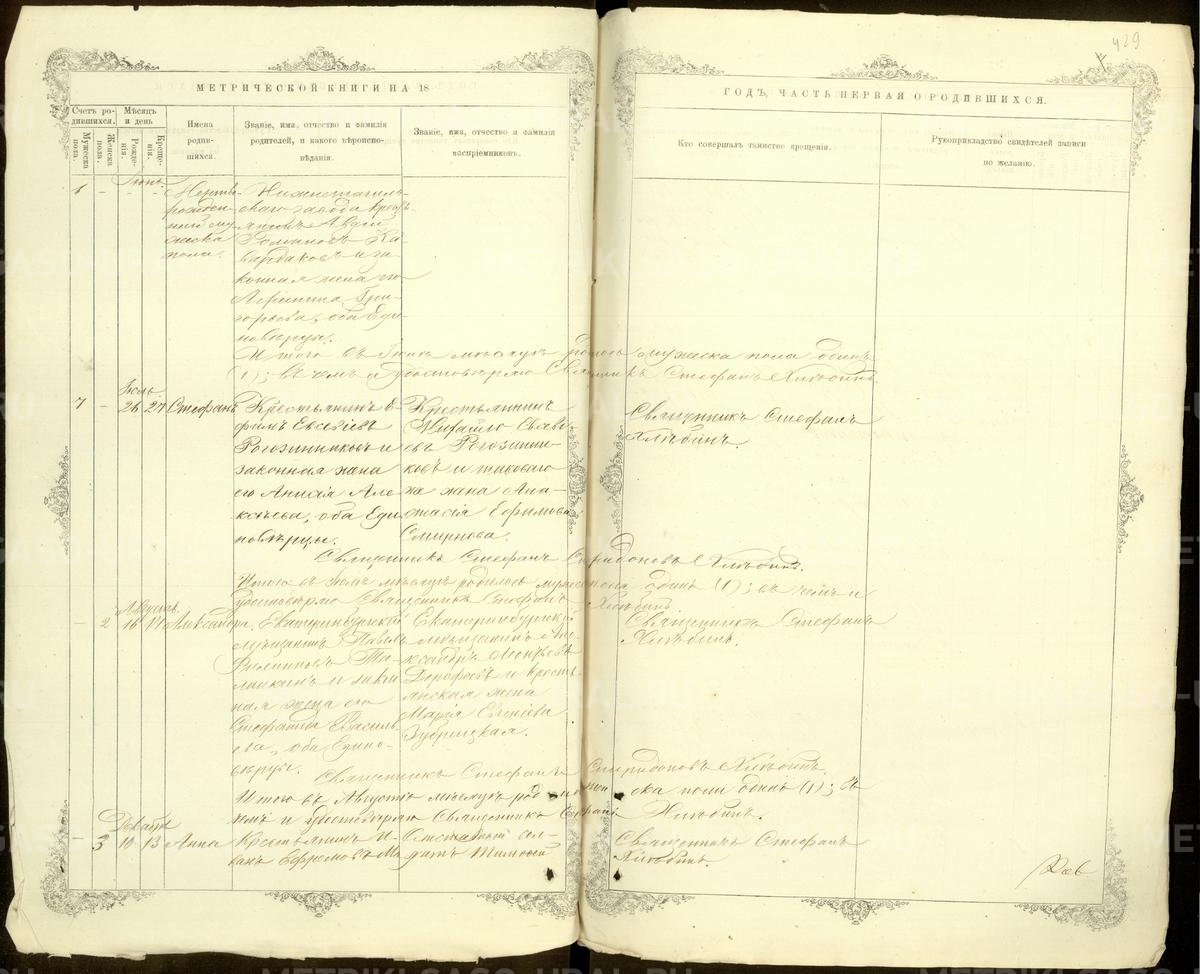 429
МЕТРИЧЕСКОЙ КНИГИ НА 18
ГОДЪ, ЧАСТЬ ПЕРВАЯ О РОДИВШИХСЯ.
Счетъ ро-
дившихся.
Мѣсяцъ
и день
Мужеска
пола.
Женска
пола.
Рожде-
нія.
Креще-
нія.
Имена
родив-
шихся.
Званіе, имя, отчество и фамилія
родителей, и какого вѣроиспо-
вѣданія.
Званіе, имя, отчество и фамилія
воспріемниковъ.
Кто совершалъ таинство крещенія.
Рукоприкладство свидѣтелей записи
по желанію.
Іюнь.
6 - - -
Мертво-
рожден-
ный му-
жеска
пола.
Нижнетагиль-
скаго завода крестъ-
янинъ Авдій
Романовъ Ка-
и за-
конная жена его
Агрипина Гри-
горьева, оба Еди-
новѣрцы.
Итого въ Іюнѣ мѣсяцѣ родилось мужеска пола одинъ
(1); въ чемъ и удостовѣряю Священникъ Стефанъ Хлѣбинъ.
Іюль
7 - 26 27 Стефанъ
Крестьянинъ Е-
фимъ Евсѣевъ
Рогозинниковъ и
законная жена
его Анисія Але-
ксѣева, оба Еди-
новѣрцы.
Крестьянинъ
Михайло Савв-
евъ Рогозинни-
ковъ и таковаго
же жена Ана-
стасія Ефимова
Смирнова.
Священникъ Стефанъ
Хлѣбинъ.
Священникъ Стефанъ Спиридоновъ Хлѣбинъ.
Итого въ Іюлѣ мѣсяцѣ родилось мужеска пола одинъ (1); въ чемъ и
удостовѣряю Священникъ Стефанъ Хлѣбинъ
Августъ.
- 2 16 17 Александра,
Екатеринбургскій
мѣщанинъ Павелъ
Филиповъ
и закон-
ная жена его
Стефанида Василь-
ева, оба Едино-
вѣрцы.
Екатеринбургскій
мѣщанинъ Але-
ксандръ Леонтьевъ
Дорофеевъ и кресть-
янская жена
Марія Евгеніева
Зубрицкая.
Священникъ Стефанъ
Хлѣбинъ.
Священникъ Стефанъ Спиридоновъ Хлѣбинъ.
Итого въ Августѣ мѣсяцѣ род женска пола одна (1); въ
чемъ и удостовѣряю Священникъ Стефанъ Хлѣбинъ.
Декабрь
- 3 10 13 Анна
Крестьянинъ И-
ванъ Ефремовъ Ма-
Отставной сол-
датъ
Священникъ Стефанъ
Хлѣбинъ.
METRIKI.GASO-URAL.RU